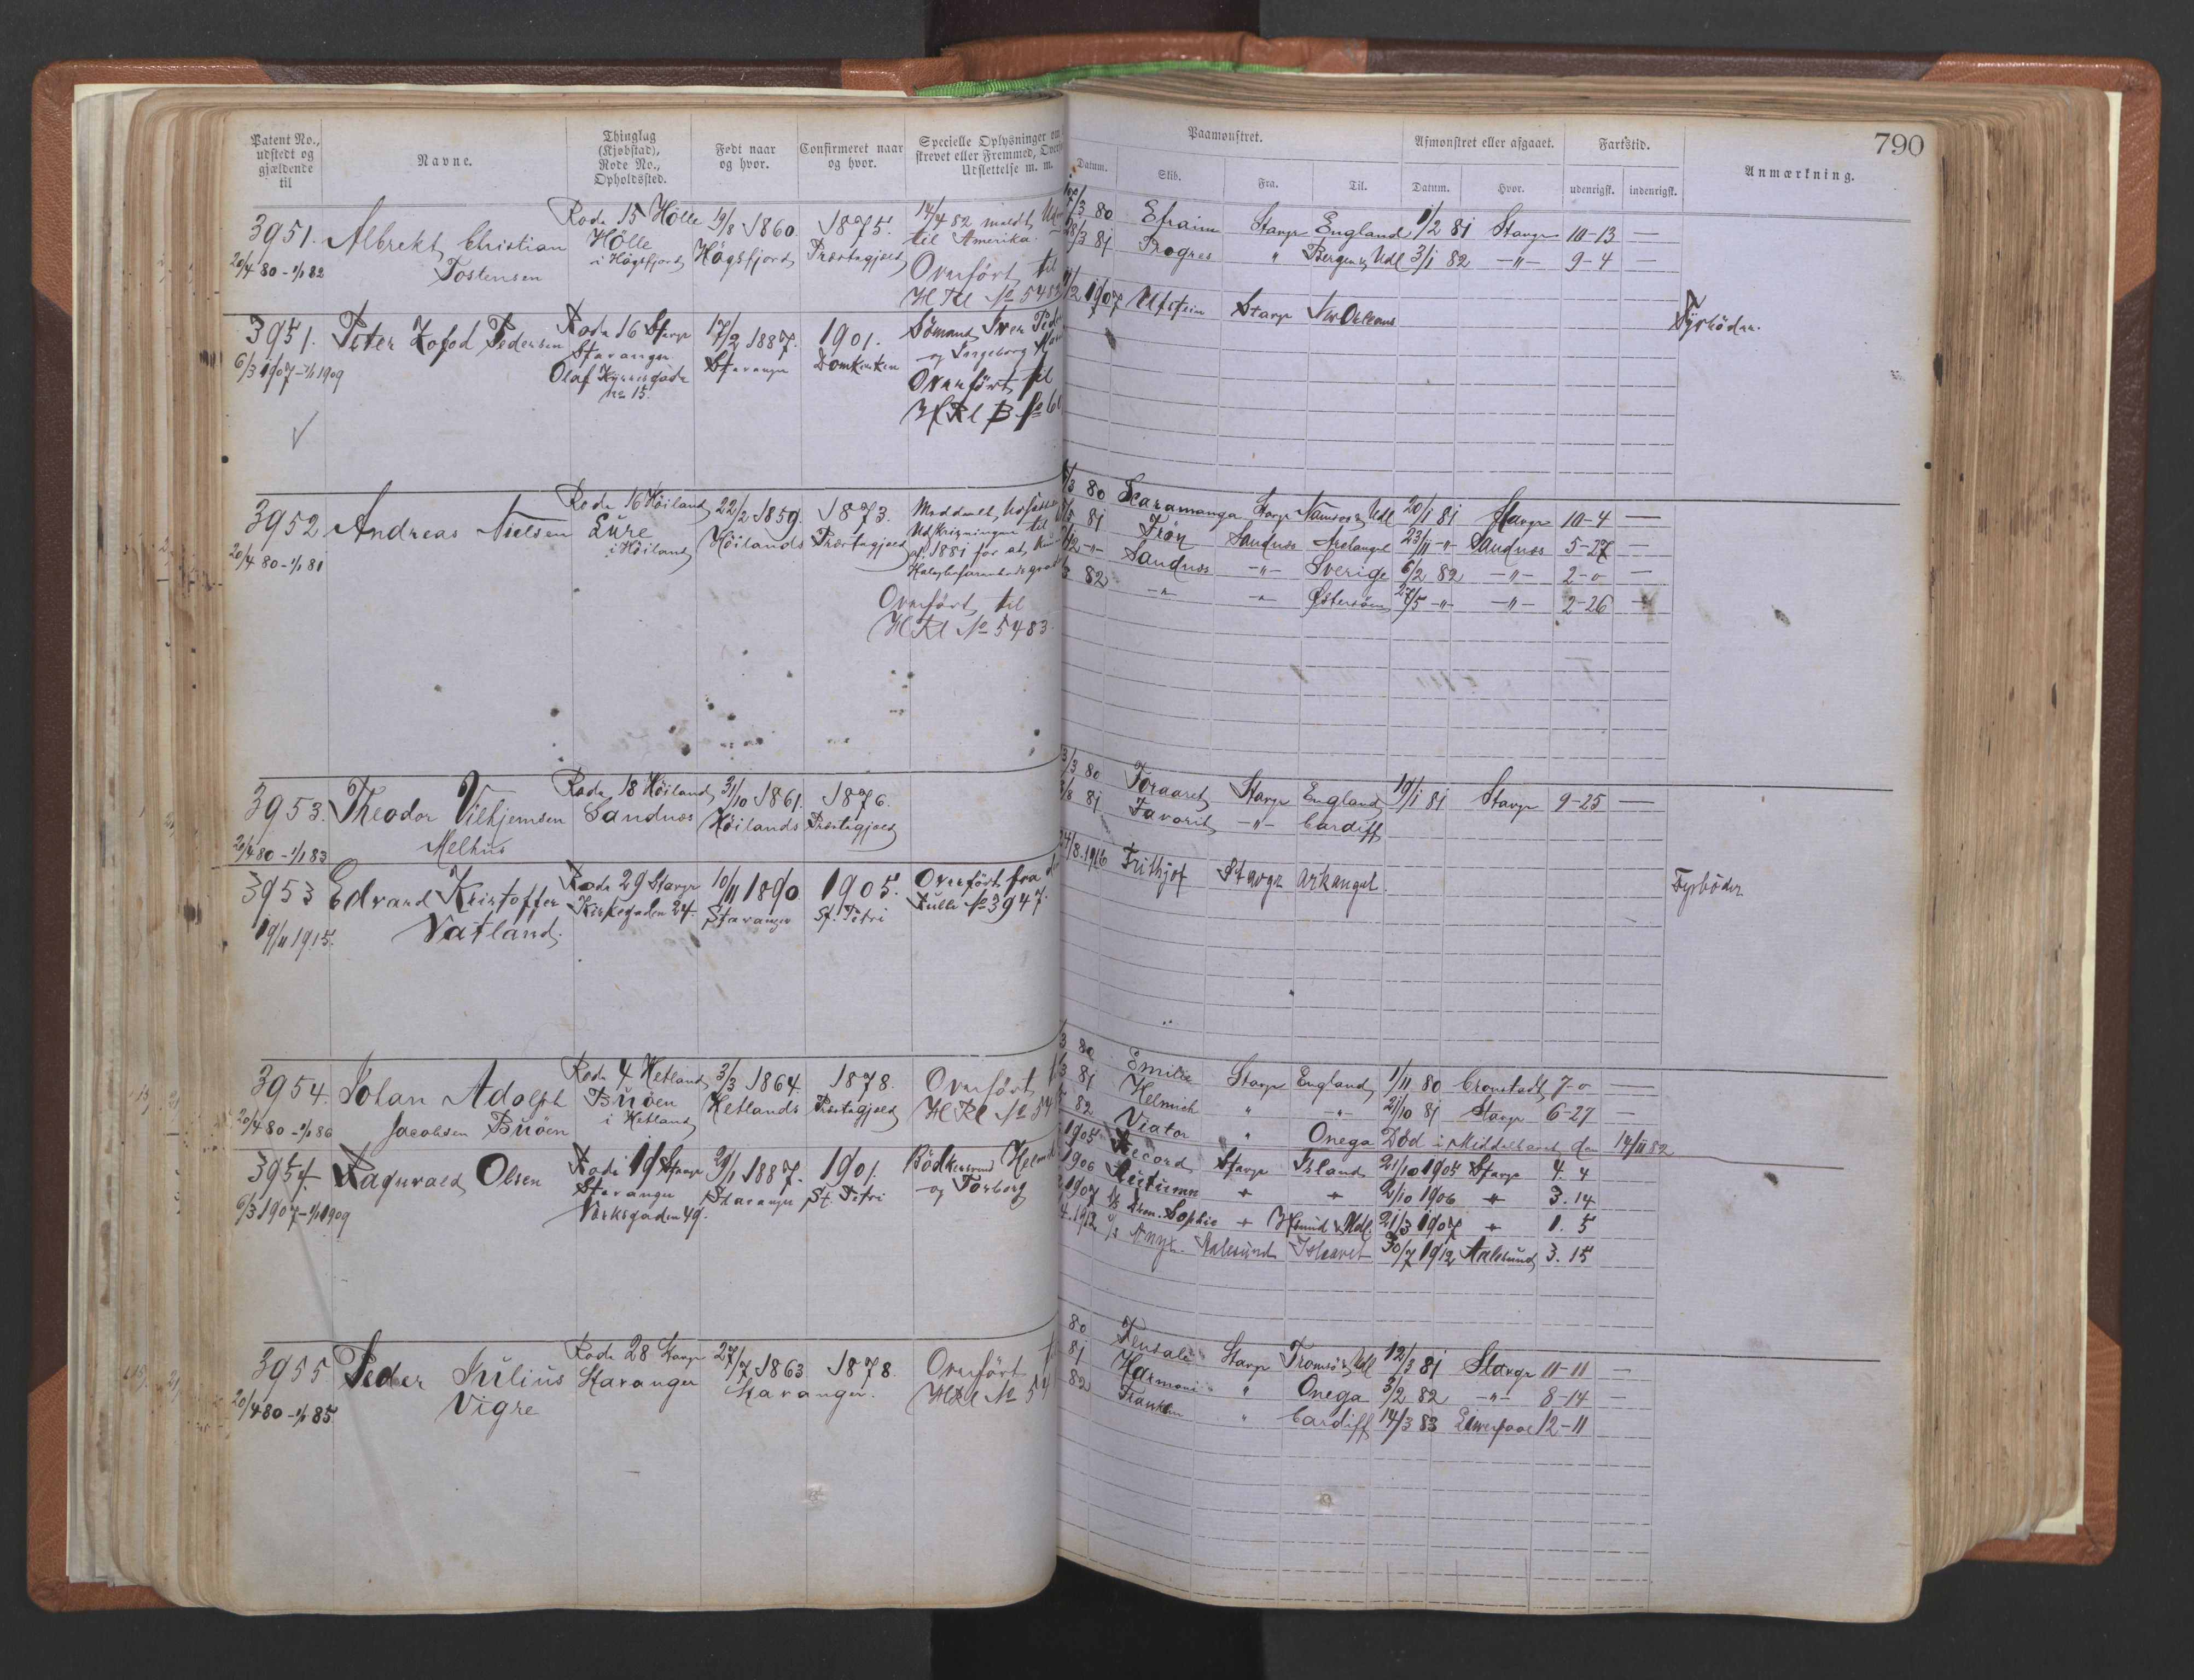 790
Patent No., udstedt og gjældende til
Navne.
Thinglag (Kjøbstad), Rode No., Opholdssted.
Født naar og hvor.
Confirmeret naar og hvor.
Specielle Oplysninger om
strevet eller Fremmed,
Udslettelse m. m.
Paamønstret.
Datum.
Skib.
Fra.
Til.
Afmønstret eller afgaaet.
Datum.
Hvor.
Fartstid.
udenrigsk.
indenrigsk.
Anmærkning.
3951. Albrekt Christian Rode 15 Hölle 19/8 1860. 1875. 14/4 82 meldt
20/4 80 - 1/1 82 Tostensen Hölle i Högsfjord Högsfjord Præstegjæld til Amerika.
Overfört til
H Rl No 5482
3/80 Efraim Stavgr England 1/2 81 Stavgr 10-13 —
3/81 Progres " Bergen & Udl 3/1 82 —"— 9-4 —
3951. Peter Kofod Pedersen Rode 16 Stavgr 17/2 1887. 1901. Sömand Sven
6/3 1907 - 1/1 1909 Stavanger Stavanger Domkirken og Ingeborg
Olaf Kyrresgade Overfört til
No 15. H Rl B No
2 1907 Utstein Stavgr New Orleans Fyrböder.
3952 Andreas Nielsen Rode 16 Höiland 22/2 1859. 1873. Meddelt Udsættelse
20/4 80 - 1/1 81 Lure i Höiland Höilands Præstegjæld Udskrivningen til
af 1881 for at
Overfört til
H Rl No 5483.
3 80 Scaramanga Stavgr Namsos & Udl 20/1 81 Stavgr 10-4 —
81 Frön Sandnes Archangel 23/11 -"- Sandnes 5-27 —
Sandnæs —"— Sverige 6/2 82 —"— 2-0 —
3 82 —"— —"— Östersöen 27/5 -"- —"— 2-26 —
3953. Theodor Vilhjemsen Rode 18 Höiland 31/10 1861. 1876.
20/4 80 - 1/1 83 Melhus Sandnæs Höilands Præstegjæld
3/3 80 Foraaret Stavgr England 19/1 81 Stavgr 9-25 —
8 81 Favorit —"— Cardiff
3953 Edvard Kristoffer Rode 29 Stavgr 10/11 1890 1905. Overfört fra
19/11 1915. Vatland. Kirkegaden 24. Stavanger St. Petri Rulle No 3947.
24/8. 1916 Frithjof Stavgr Arkangel. Fyrböder
3954. Johan Adolph Rode 4 Hetland 3/3 1864 1878. Overfört
20/4 80 - 1/1 86 Jacobsen Buöen Buöen i Hetland Hetlands Præstegjæld H Rl No 54
3 80 Emilie Stavgr England 1/11 80 Cronstadt 7-0 —
3 81 Helmich " —"— 21/10 81 Stavgr 6-27 —
82 Viator " Onega Död i Middelhavet den 14/11 82
3954. Ragnvald Olsen Rode 19 Stavgr 29/1 1887. 1901. Bödkersvend
6/3 1907 - 1/1 1909 Stavanger Stavanger St. Petri og Torborg
Værksgaden 49.
1905 Record Stavgr Island 21/10 1905 Stavgr 4. 4
1906 " " 2/10 1906 " 3. 14
1907 Sophie " & Udl. 21/3 1907 " 1. 5
4. 1912 Aalesund Ishavet 30/7 1912 Aalesund 3. 15
3955 Peder Julius Rode 28 Stavgr 27/7 1863 1878. Overfört
20/4 80 - 1/1 85 Vigre Stavanger Stavanger. H Rl No 54
80 Stavgr Tromsö & Udl 12/3 81 Stavgr 11-11 —
81 Harmoni " Onega 3/2 82 —"— 8-14 —
82 " Cardiff 14/3 83 Liverpool 12-11 —